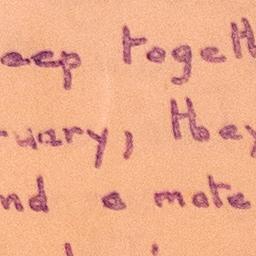 eep togeth
ruary, they
nd a mate